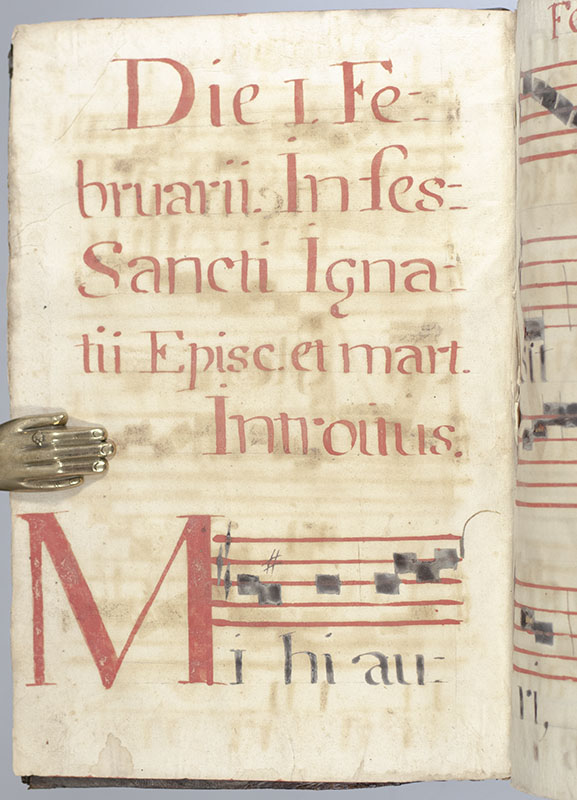 Die I. Fe-
bruarii. In fes-
Sancti Igna-
tii Episc. et mart.
Introitus.
Mi hi au-
Fe
sit
ri,